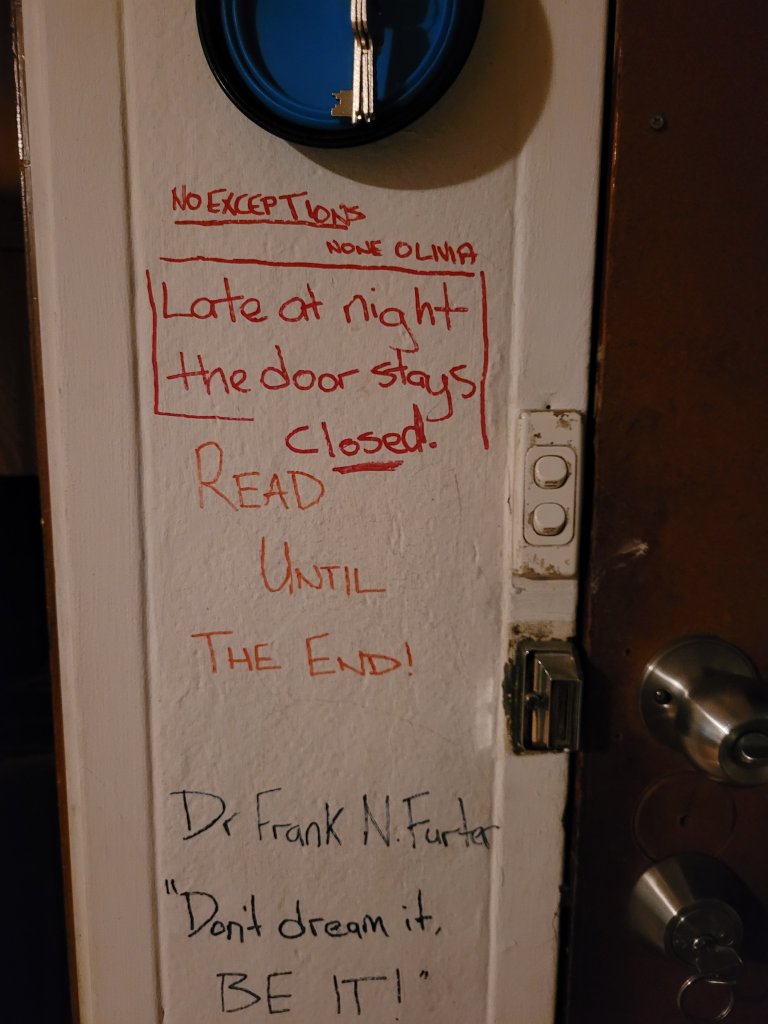 NO EXCEPTIONS
NONE OLIVIA
Late at night
the door stays
closed.
READ
UNTIL
THE END!
Dr Frank N. Furter
"Don't dream it,
BE IT!"